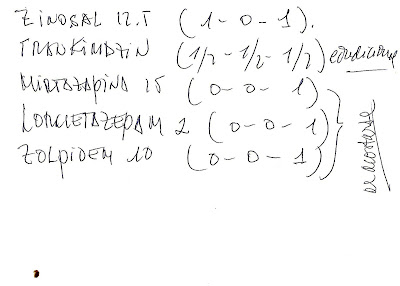 ZINOSAL 12.5 (1-0-1).
TRANKIMAZIN (1/2-1/2-1/2)
MIRTAZAPINA 15 (0-0-1)
LORMETAZEPAM 2 (0-0-1)
ZOLPIDEM 10 (0-0-1)
al acostarse